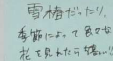 雪椿だったり、
季節によって色々な
花を見れたら嬉しい!!